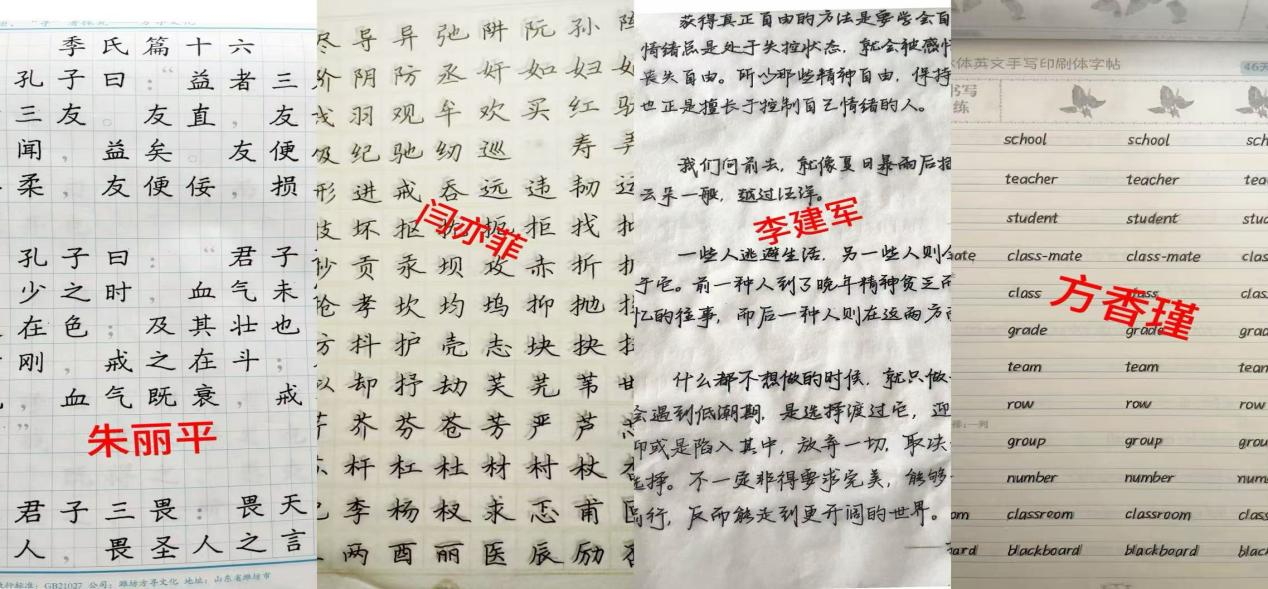 季氏篇十六
孔子曰：“益者三
三友。友直，友
闻，益矣。友便
柔，友便佞，损
孔子曰：“君子
少之时，血气未
在色；及其壮也
刚，戒之在斗；
血气既衰，戒
”
朱丽平
君子三畏：畏天
人，畏圣人之言
执行标准：GB21027 公司：潍坊方寻文化 地址：山东省潍坊市
导异弛阱阮孙
阶阴防丞奸如妇
羽观牟欢买红
级纪驰纫巡 寿
形进戒吞远违韧
技坏抠扼拒找
闫亦菲
抄贡汞坝攻赤折
抢孝坎均坞抑抛
方抖护壳志块抉
以却抒劫芙芜苇
芥芬苍芳严芦
杆杠杜材村杖
李杨杈求忑甫
两酉丽医辰励
获得真正自由的方法是要学会自
情绪总是处于失控状态，就会被感情
丧失自由。所以那些精神自由，保持
也正是擅长于控制自己情绪的人。
我们向前去，就像夏日暴雨后
云朵一般，越过汪洋。
李建军
一些人逃避生活，另一些人则全
于它。前一种人到了晚年精神贫乏而
忆的往事，而后一种人则在这两方面
什么都不想做的时候，就只做
会遇到低潮期，是选择渡过它，迎
却或是陷入其中，放弃一切，取决
选择。不一定非得要求完美，能够
前行，反而能走到更开阔的世界。
体英文手写印刷体字帖
46天
书写
练
school school
teacher teacher tea
student student stu
mate class-mate class-mate clas
class class clas
方香瑾
grade grade grad
team team tean
row row row
group group grou
number number num
om classroom classroom clas
oard blackboard blackboard blac